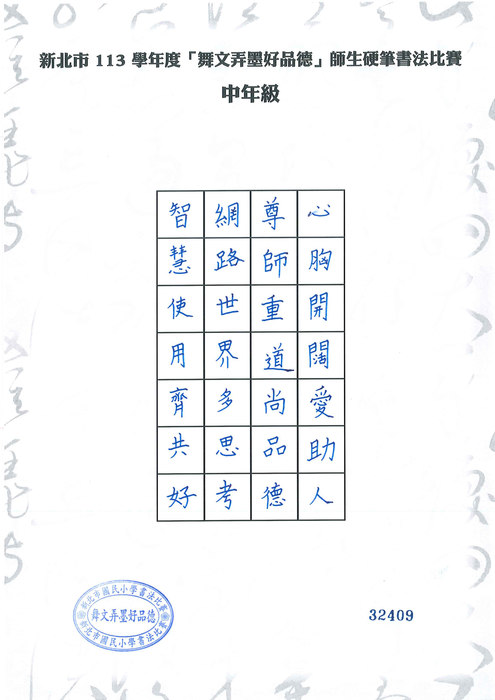 新北市 113 學年度「舞文弄墨好品德」師生硬筆書法比賽
中年級
心胸開闊愛助人
尊師重道尚品德
網路世界多思考
智慧使用齊共好
新北市國民小學書法比賽
舞文弄墨好品德
新北市國民小學書法比賽
32409